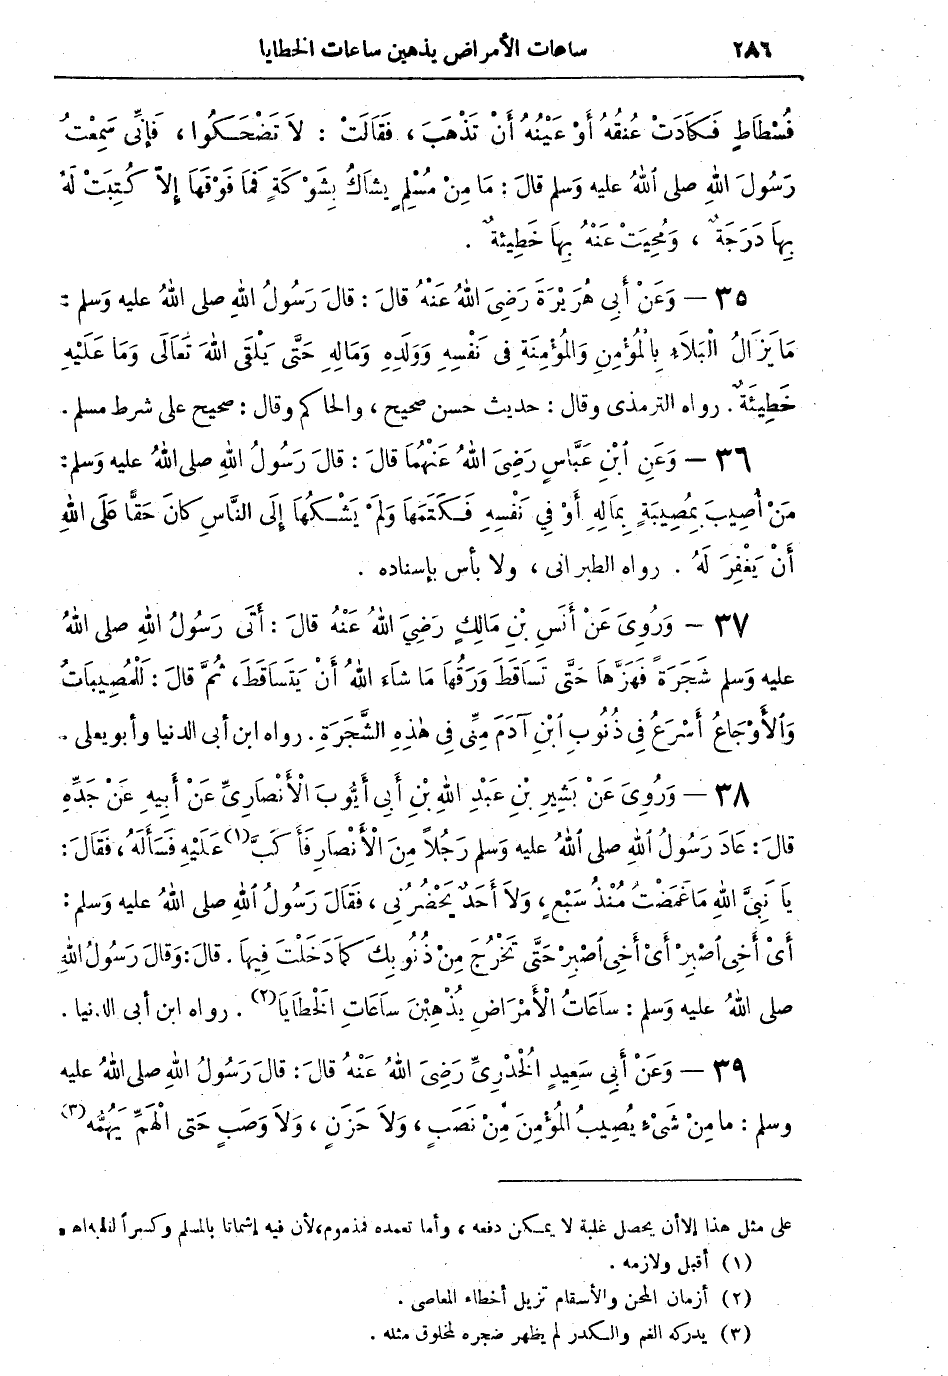 ٢٨٦ ساعات الأمراض يذهبن ساعات الخطايا
فُسْطَاطٍ فَكَادَتْ عُنقُهُ أَوْ عَيْنُهُ أَنْ تَذْهَبَ، فَقَالَتْ : لاَ تَضْحَكُوا، فَإِنِّى سَمِعْتُ
رَسُولَ اللهِ صلى اللهُ عليه وَسلم قالَ : مَا مِنْ مُسْلِمٍ يشاكُ بِشَوْكَةٍ فَما فَوْقَهَا إِلاَّ كُتِبَتْ لَهُ
بِهَا دَرَجَةٌ ، وَمُحِيَتْ عَنْهُ بِهَا خَطِيئةٌ .
٣٥ – وَعَنْ أَبِى هُرَيْرَةَ رَضِىَ اللهُ عَنْهُ قالَ : قالَ رَسُولُ اللهِ صلى اللهُ عليه وَسلم :
مَا يَزَالُ الْبَلاَءِ بِالْمُؤْمِنِ وَالمُؤْمِنَةِ فِى نَفْسِهِ وَوَلَدِهِ وَمَالِهِ حَتَّى يَلْقَى اللهَ تَعَالَى وَمَا عَلَيْهِ
خَطِيئَةٌ . رواه الترمذى وقال : حديث حسن صحيح ، والحاكم وقال : صحيح على شرط مسلم .
٣٦ – وَعَنِ ابْنِ عَبَّاسٍ رَضِىَ اللهُ عَنْهُمَا قالَ : قالَ رَسُولُ اللهِ صلى اللهُ عليه وَسلم :
مَنْ أُصِيبَ بِمُصِيبَةٍ بِمَالِهِ أَوْ فِي نَفْسِهِ فَكَتَمَهَا وَلَمْ يَشْكُهَا إِلَى النَّاسِ كانَ حَقًّا عَلَى اللهِ
أَنْ يَغْفِرَ لَهُ . رواه الطبرانى ، ولا بأس بإسناده .
٣٧ – وَرُوِىَ عَنْ أَنَسِ بْنِ مَالِكٍ رَضِيَ اللهُ عَنْهُ قالَ : أَتَى رَسُولُ اللهِ صلى اللهُ
عليه وَسلم شَجَرَةً فَهَزَّهَا حَتَّى تَسَاقَطَ وَرَقُهَا مَا شَاءَ اللهُ أَنْ يَتَسَاقَطَ، ثُمَّ قالَ : لَلْمُصِيبَاتُ
وَالأَوْجَاعُ أَسْرَعُ فِى ذُنُوبِ ابْنِ آدَمَ مِنِّى فِى هٰذِهِ الشَّجَرَةِ . رواه ابن أبى الدنيا وأبو يعلى .
٣٨ – وَرُوِىَ عَنْ بَشِيرِ بْنِ عَبْدِ اللهِ بْنِ أَبِي أَيُّوبَ الْأَنْصَارِىِّ عَنْ أَبِيهِ عَنْ جَدِّهِ
قالَ : عَادَ رَسُولُ اللهِ صلى اللهُ عليه وَسلم رَجُلاً مِنَ الْأَنْصَارِ فَأَكَبَّ (١) عَلَيْهِ فَسَأَلَهُ ، فَقَالَ :
يَا نَبِىَّ اللهِ مَا غَمَضْتُ مُنْذُ سَبْعٍ، وَلاَ أَحَدٌ يَحْضُرُنِى ، فَقَالَ رَسُولُ اللهِ صلى اللهُ عليه وَسلم :
أَىْ أَخِى اصْبِرْ أَىْ أَخِى اصْبِرْ حَتَّى تَخْرُجَ مِنْ ذُنُوبِكَ كَمَا دَخَلْتَ فِيهَا . قالَ : وَقالَ رَسُولُ اللهِ
صلى اللهُ عليه وَسلم : سَاعَاتُ الْأَمْرَاضِ يُذْهِبْنَ سَاعَاتِ الْخَطَايَا (٢) . رواه ابن أبى الدنيا .
٣٩ – وَعَنْ أَبِي سَعِيدٍ الْخُدْرِىِّ رَضِىَ اللهُ عَنْهُ قالَ : قالَ رَسُولُ اللهِ صلى اللهُ عليه
وسلم : مامِنْ شَىْءٍ يُصِيبُ المُؤْمِنَ مِنْ نَصَبٍ ، وَلاَ حَزَنٍ ، وَلاَ وَصَبٍ حَتى الْهَمِّ يَهُمُّه (٣)
على مثل هذا إلا أن يحصل غلبة لا يمكن دفعه ، وأما تعمده فمذموم، لأن فيه إشماتا بالمسلم وكسراً لقلبه اهـ .
(١) أقبل ولازمه .
(٢) أزمان المحن والأسقام تزيل أخطاء المعاصى .
(٣) يدركه الغم والكدر لم يظهر ضجره لمخلوق مثله .